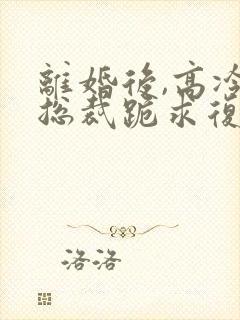 離婚後,高冷
总裁跪求復
洛洛